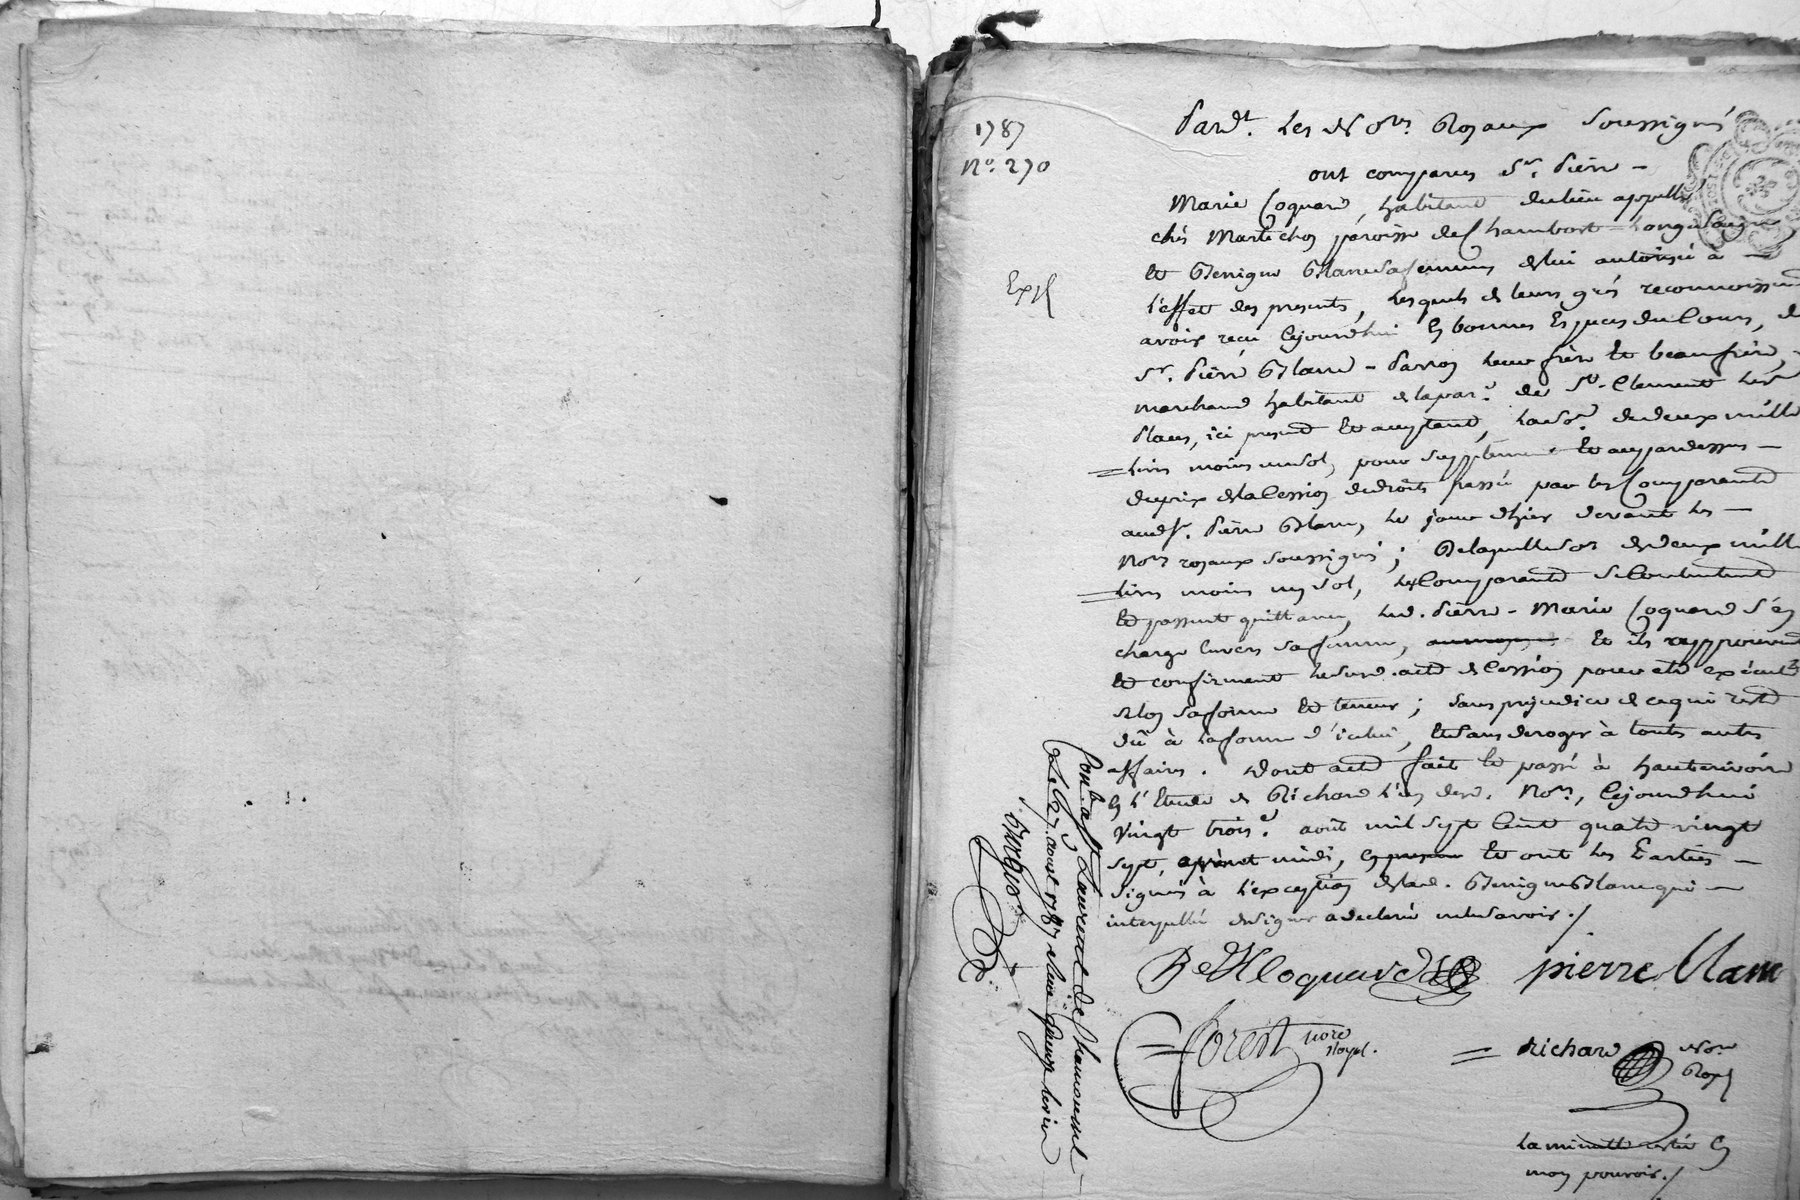 1787
N.o 270
Expé
Pard.t Les No.res Royaux Soussignés
ont comparu S.r Pierre -
Marie Coquard, habitant du lieu appellé
chés Martichon paroisse de Chambost = Longesaigne
et Benigne Blanc sa femme de lui autorisée à -
l'effet des presentes, Lesquels de leurs grés reconnoissent
avoir recu cejourdhui En bonnes Especes du Cours, de
S.r Pierre Blanc - Parron Leur frère Et beaufrère, -
marchand habitant de la par.e de S.t Clement Les
Places, ici present Et acceptant, La So.e de deux mille
= Livres moins un sol, pour supplement Et aupardessus -
du prix de la Cession de droits passée par les Comparants
aud. S.r Pierre Blanc, le jour d'hier devant les -
No.res royaux soussignés ; De laquelle so.e de deux mille
= Livres moins un sol, les Comparants se Contentent
Et passent quittance, Led. Pierre - Marie Coquard s'en
charge Envers sa femme, Et ils rapprouvent
Et confirment le susd. acte de Cession pour etre exécuté
selon sa forme Et teneur ; sans prejudice de ce qui reste
dû à la forme d'icelui, Et sans deroger à toutes autres
affaires. Dont acte fait Et passé à hauterivoire
En l'Etude de Richard l'un desd. No.res, Cejourdhui
Vingt trois.e août mil sept Cent quatre vingt
sept, après midi, Et ont les Parties -
Signés à l'exception de lad. Benigne Blanc qui -
interpellée de signer a declaré ne le savoir ./
P M Coquard
pierre blanc
= forest no.re Royal.
= Richard No.re Royal
La minutte restée En
mon pouvoir ./
Con.lé a S.t Laurent de Chamousset -
Le 27 aout 1787 Reçu quinze sols